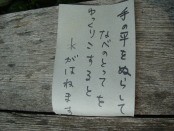 手の平をぬらして
なべのとってを
ゆっくりこすると
水がはねます